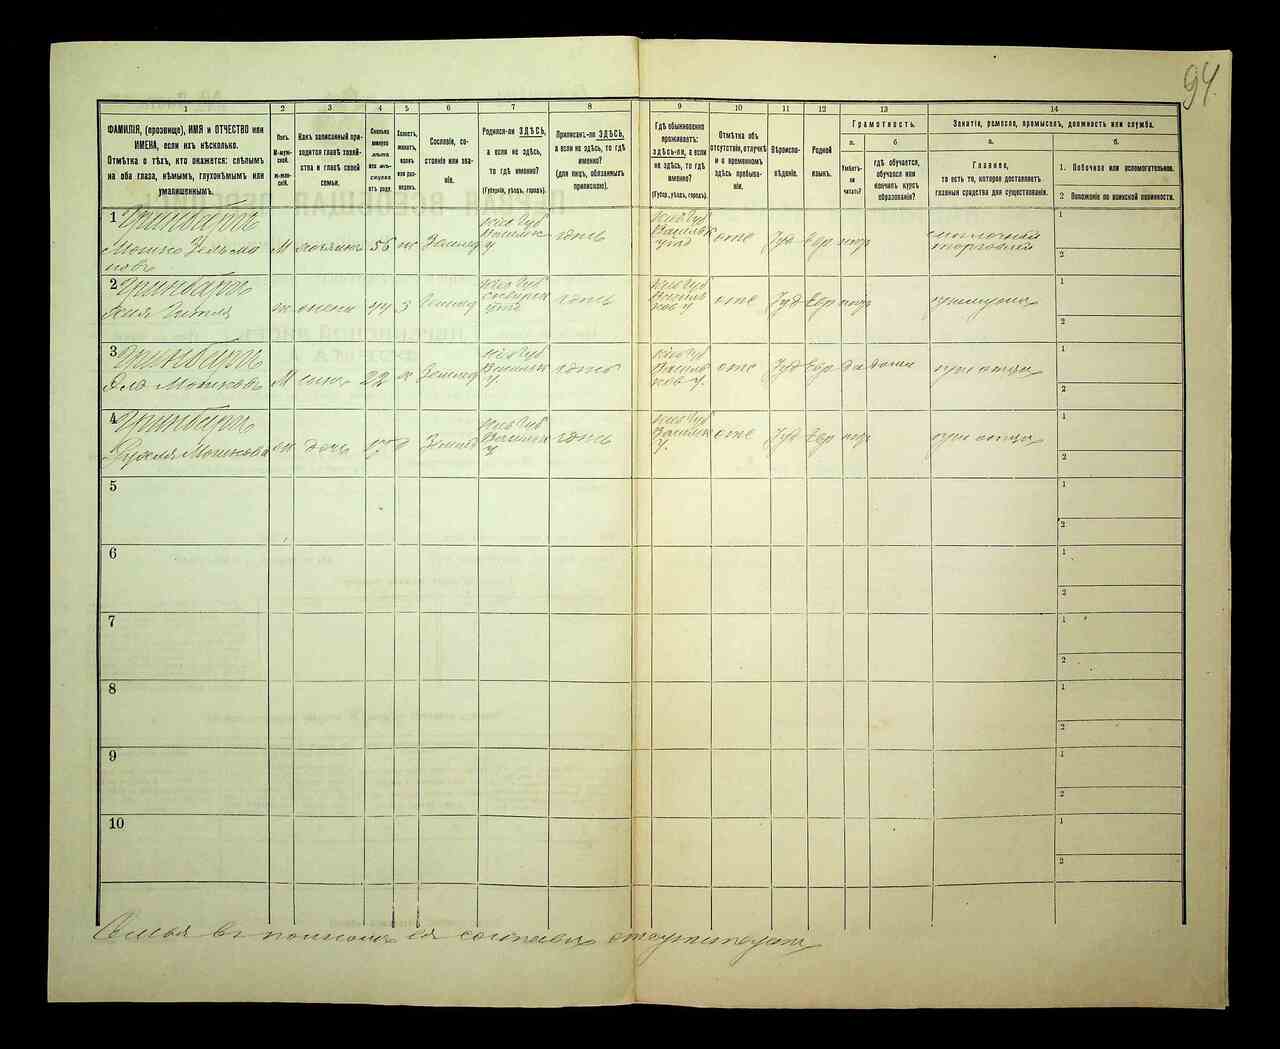 94
1 2 3 4 5 6 7 8 9 10 11 12 13 14
ФАМИЛІЯ, (прозвище), ИМЯ и ОТЧЕСТВО или
ИМЕНА, если ихъ нѣсколько.
Отмѣтка о тѣхъ, кто окажется: слѣпымъ
на оба глаза, нѣмымъ, глухонѣмымъ или
умалишеннымъ.
Полъ.
М-муж-
ской.
Ж-жен-
скій.
Какъ записанный при-
ходится главѣ хозяй-
ства и главѣ своей
семьи.
Сколько
минуло
лѣтъ
или мѣ-
сяцевъ
отъ роду.
Холостъ,
женатъ,
вдовъ
или раз-
веденъ.
Сословіе, со-
стояніе или зва-
ніе.
Родился-ли ЗДѢСЬ,
а если не здѣсь,
то гдѣ именно?
(Губернія, уѣздъ, городъ).
Приписанъ-ли ЗДѢСЬ,
а если не здѣсь, то гдѣ
именно?
(для лицъ, обязанныхъ
припискою).
Гдѣ обыкновенно
проживаетъ:
здѣсь-ли, а если
не здѣсь, то гдѣ
именно?
(Губер., уѣздъ, городъ).
Отмѣтка объ
отсутствіи, отлучкѣ
и о временномъ
здѣсь пребыва-
ніи.
Вѣроиспо-
вѣданіе.
Родной
языкъ.
Грамотность.
а.
Умѣетъ-
ли
читать?
б
гдѣ обучается,
обучался или
кончилъ курсъ
образованія?
Занятіе, ремесло, промыселъ, должность или служба.
а.
Главное,
то есть то, которое доставляетъ
главныя средства для существованія.
б.
1. Побочное или вспомогательное.
2 Положеніе по воинской повинности.
1 Гринбаргъ
Мошко Зельма
новъ
М хозяинъ 56 ж
Кіев Губ
Васильк
у
здѣсь
Кіев Губ
Васильк
уѣзд
Іуд Евр
молочная
торговля
1
2
2 Гринбаргъ
Хая Гитля
ж жена 44 з
Кіев Губ
Сквирск
уѣзд
здѣсь
Кіев Губ
Василь
ков у
Іуд Евр
при мужѣ
1
2
3 Гринбаргъ
Мошковъ
М сынъ 22 х
Кіев Губ
Васильк
у.
здѣсь
Кіев Губ
Василь
ков у.
Іуд Евр да дома
при отцѣ
1
2
4 Гринбаргъ
Рухля Мошкова
ж дочь 17 д
Кіев Губ
Васильк
у
здѣсь
Кіев Губ
Васильк
у.
Іуд Евр
при отцѣ
1
2
5
1
2
6
1
2
7
1
2
8
1
2
9
1
2
10
1
2
Семья въ полномъ ея составѣ отсутствуетъ